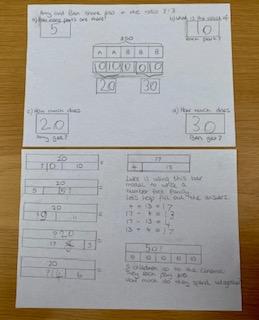 Amy and Ben share £50 in the ratio 2:3
a) How many parts are there?
5
b) What is the value of each part?
10
£50
A A B B B
10 10 10 10 10
20 30
c) How much does Amy get?
20
d) How much does Ben get?
30
20
10 10
=
20
=
20
=
20
17 3
=
20
6
=
17
4 13
Luke is using this bar
model to write a
number fact family.
Let's help fill out the answers.
4 + 13 = 17
17 - 4 = 13
17 - 13 = 4
13 + 4 = 17
50
5 children go to the cinema.
They each pay £10
How much do they spend altogether?